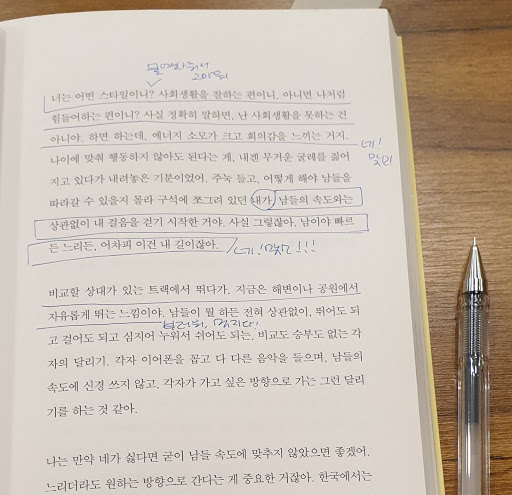 물어봐줘서
고마워
너는 어떤 스타일이니? 사회생활을 잘하는 편이니, 아니면 나처럼
힘들어하는 편이니? 사실 정확히 말하면, 난 사회생활을 못하는 건
아니야. 하면 하는데, 에너지 소모가 크고 회의감을 느끼는 거지.
나이에 맞춰 행동하지 않아도 된다는 게, 내겐 무거운 굴레를 짊어
네!
지고 있다가 내려놓은 기분이었어. 주눅 들고, 어떻게 해야 남들을
따라갈 수 있을지 몰라 구석에 쪼그려 있던 내가, 남들의 속도와는
상관없이 내 걸음을 걷기 시작한 거야. 사실 그렇잖아. 남이야 빠르
든 느리든, 어차피 이건 내 길이잖아.
비교할 상대가 있는 트랙에서 뛰다가, 지금은 해변이나 공원에서
자유롭게 뛰는 느낌이야. 남들이 뭘 하든 전혀 상관없이. 뛰어도 되
고 걸어도 되고 심지어 누워서 쉬어도 되는, 비교도 승부도 없는 각
자의 달리기. 각자 이어폰을 꼽고 다 다른 음악을 들으며, 남들의
속도에 신경 쓰지 않고, 각자가 가고 싶은 방향으로 가는 그런 달리
기를 하는 것 같아.
나는 만약 네가 싫다면 굳이 남들 속도에 맞추지 않았으면 좋겠어.
느리더라도 원하는 방향으로 간다는 게 중요한 거잖아. 한국에서는